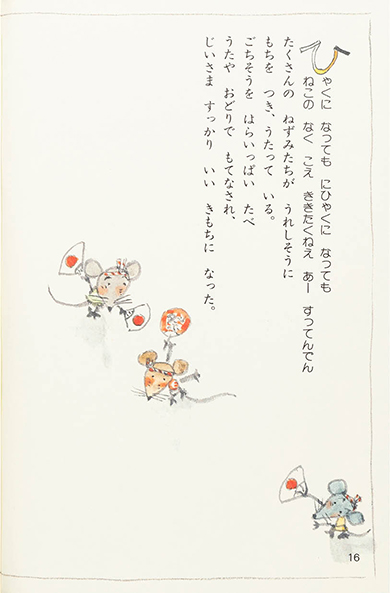 ひゃくに なっても にひゃくに なっても
ねこの なく こえ ききたくねえ あー すってんでん
たくさんの ねずみたちが うれしそうに
もちを つき、うたって いる。
ごちそうを はらいっぱい たべ
うたや おどりで もてなされ、
じいさま すっかり いい きもちに なった。
16